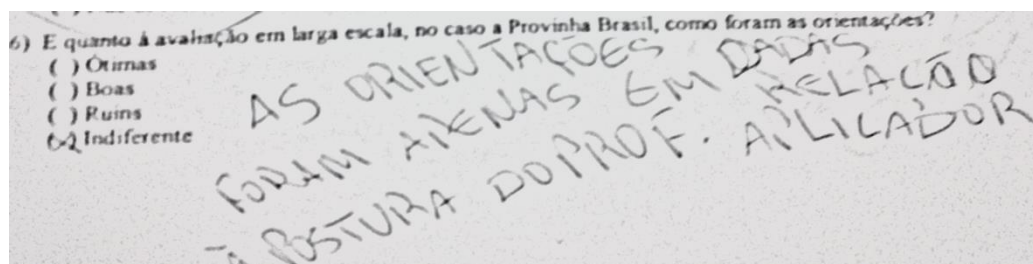 6) E quanto à avaliação em larga escala, no caso a Provinha Brasil, como foram as orientações?
( ) Ótimas
( ) Boas
( ) Ruins
(x) Indiferente
AS ORIENTAÇÕES DADAS
FORAM APENAS EM RELAÇÃO
À POSTURA DO PROF. APLICADOR